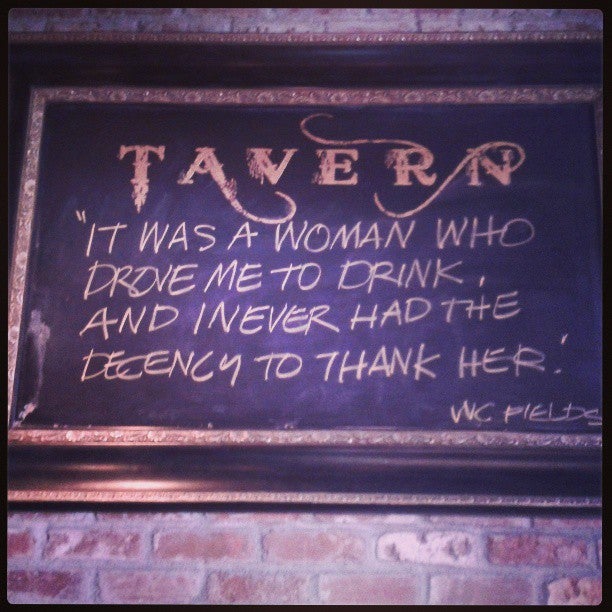 TAVERN
"IT WAS A WOMAN WHO
DROVE ME TO DRINK,
AND I NEVER HAD THE
DECENCY TO THANK HER."
W.C. FIELDS